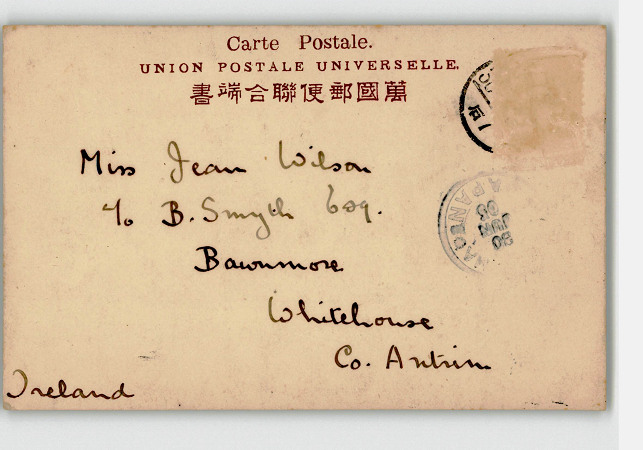 Carte Postale.
UNION POSTALE UNIVERSELLE.
萬國郵便聯合端書
Miss Jean Wilson
c/o B. Smyth Esq.
Bawnmore
Whitehouse
Co. Antrim
Ireland
JAPAN
JUN